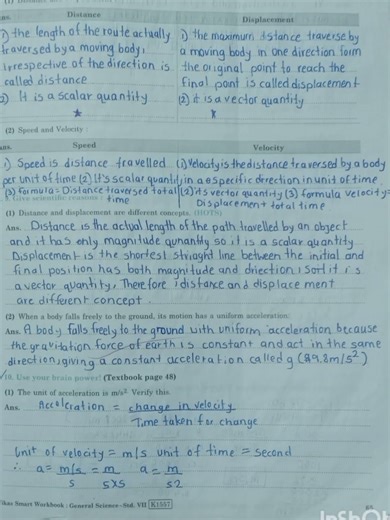 Distance Displacement
1) the length of the route actually
traversed by a moving body,
irrespective of the direction is
called distance
2) It is a scalar quantity
1) the maximum istance traverse by
a moving body in one direction form
the original point to reach the
final point is called displacement
(2) it is a vector quantity
(2) Speed and Velocity
Ans. Speed Velocity
1) Speed is distance travelled
per unit of time (2) It's scalar quantity
(3) Formula = Distance traversed total
time
(1) Velocity is the distance traversed by a body
in a especific derection in unit of time
(2) its vector quantity (3) formula velocity =
Displacement ÷ total time
9. Give scientific reasons :
(1) Distance and displacement are different concepts. (HOTS)
Ans. Distance is the actual length of the path travelled by an object
and it has only magnitude qunantily so it is a scalar quantity
Displacement is the shortest stright line between the initial and
final position has both magnitude and driection; Sort it is
a vector quantity, Therefore idistance and displace ment
are different concept.
(2) When a body falls freely to the ground, its motion has a uniform acceleration:
Ans. A body falls freely to the ground with uniform acceleration because
the gravitation force of earth is constant and act in the same
direction, giving a constant acceleration called g (≈9.8m/s²)
10. Use your brain power! (Textbook page 48)
(1) The unit of acceleration is m/s². Verify this.
Ans. Acceleration = change in velocity
Time taken for change
Unit of velocity = m/s unit of time = second
∴ a = m/s = m a = m
s s×s s2
Smart Workbook : General Science - Std. VII K1557